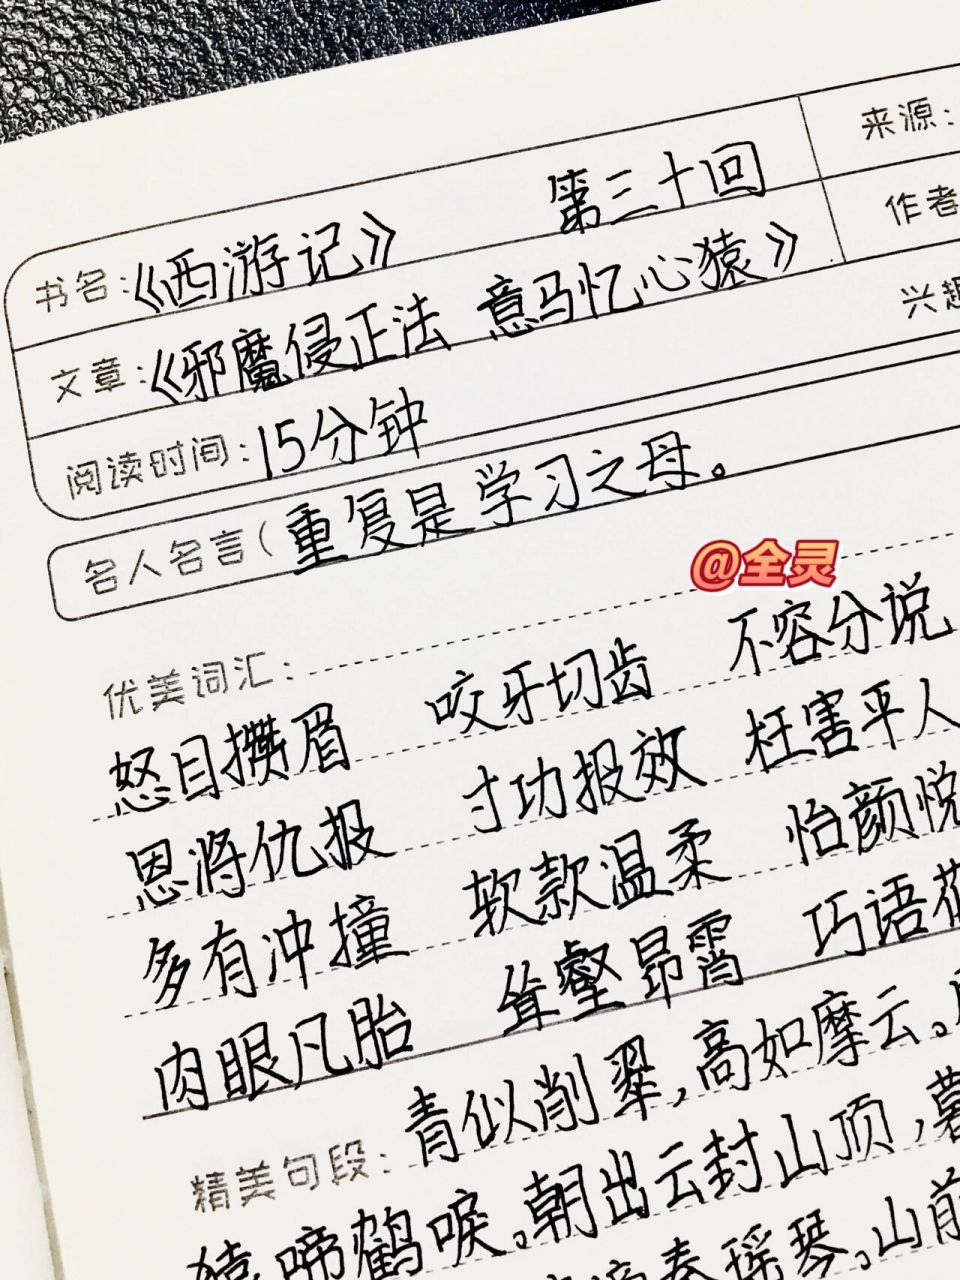 来源:
书名:《西游记》 第三十回
作者
文章:《邪魔侵正法 意马忆心猿》
兴趣
阅读时间:15分钟
名人名言(重复是学习之母。
@全灵
优美词汇:
怒目攒眉 咬牙切齿 不容分说
恩将仇报 寸功报效 枉害平人
多有冲撞 软款温柔 怡颜悦
肉眼凡胎 耸壑昂霄 巧语花
精美句段:青似削翠,高如摩云。
猿啼鹤唳。朝出云封山顶,暮
春瑶琴。山前